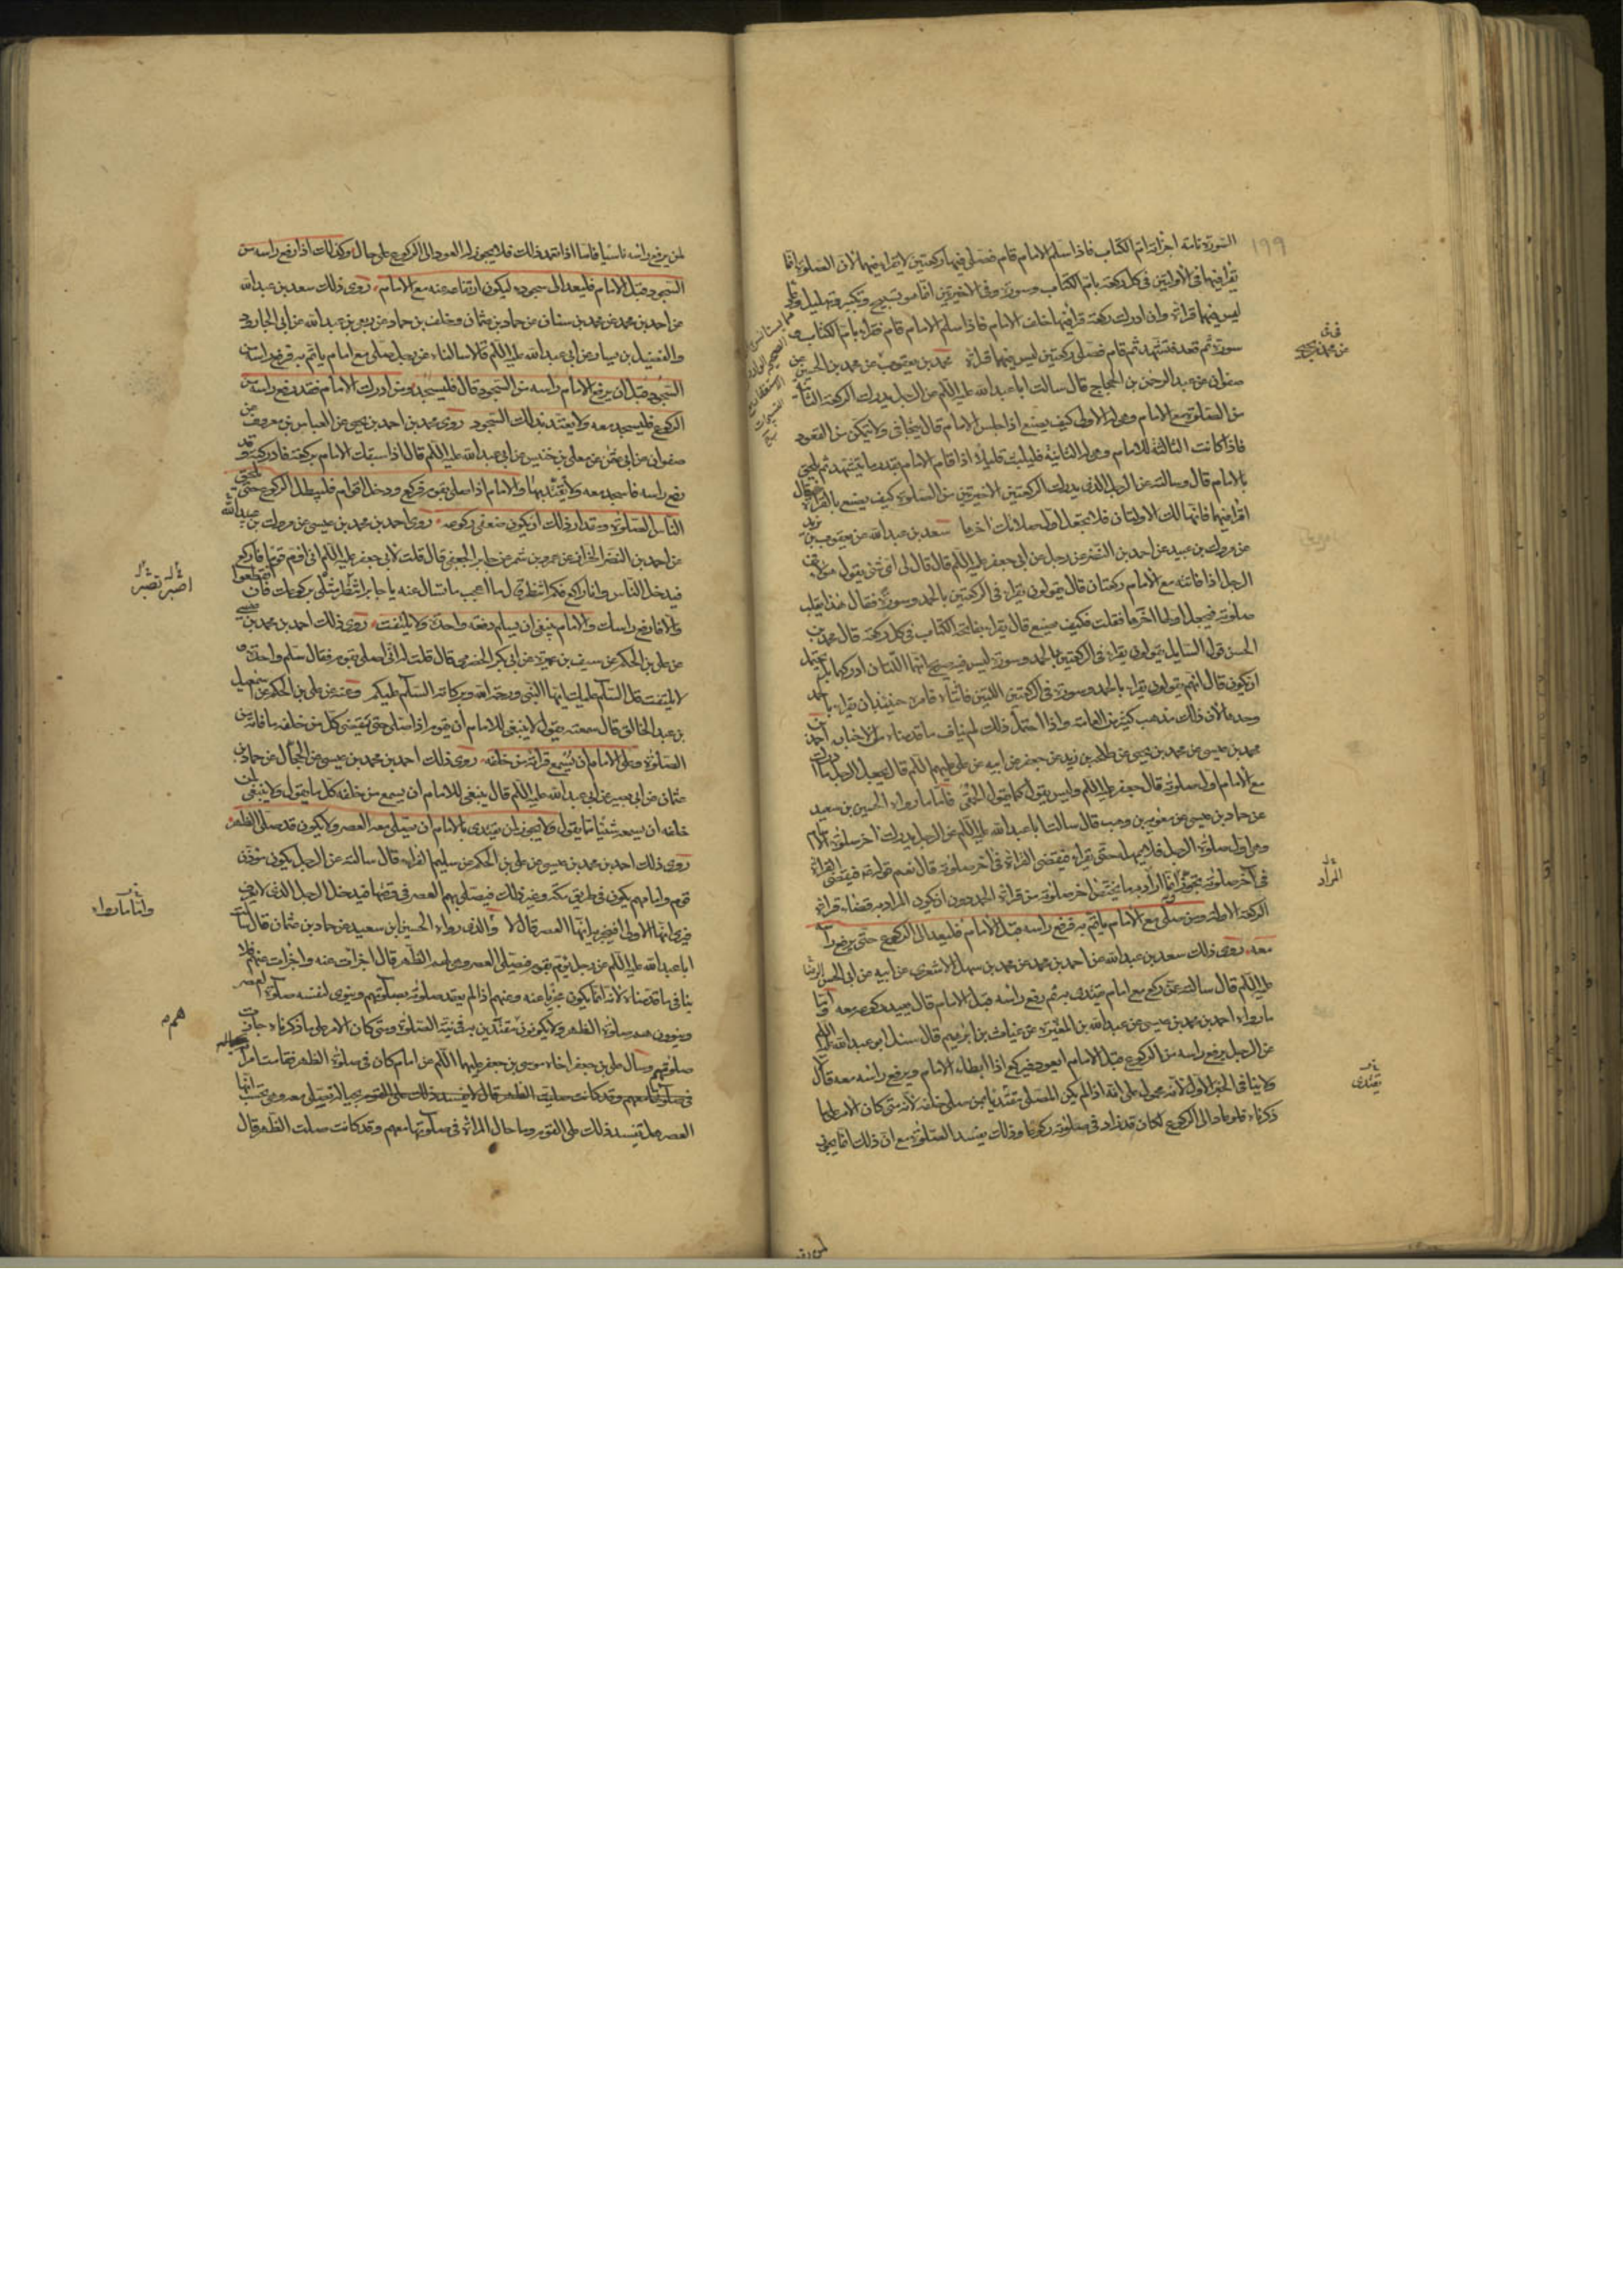 ١٩٩
السورة تامة اجزأته ام الكتاب فاذا سلم الامام قام فصلى فيها ركعتين لا يقرأ فيهما لان الصلوة انما
يقرأ فيها في الاولتين في كل ركعة بام الكتاب وسورة وفي الاخيرتين انما هو تسبيح وتكبير وتهليل ودعاء
ليس فيهما قراءة وان ادرك ركعة قرأ فيها خلف الامام فاذا سلم الامام قام فقرأ بام الكتاب و
سورة ثم قعد فتشهد ثم قام فصلى ركعتين ليس فيهما قراءة محمد بن يعقوب عن محمد بن الحسين عن
صفوان عن عبد الرحمن بن الحجاج قال سالت ابا عبد الله عليه السلم عن الرجل يدرك الركعة الثانية
من الصلوة مع الامام وهي له الاولى كيف يصنع اذا جلس الامام قال يتجافى ولا يتمكن من القعود
فاذا كانت الثالثة للامام وهي له الثانية فليلبث قليلا اذا قام الامام بقدر ما يتشهد ثم يلحق
بالامام قال وسالته عن الرجل الذي يدرك الركعتين الاخيرتين من الصلوة كيف يصنع بالقراءة فقال
اقرأ فيهما فانهما لك الاولتان فلا تجعل اول صلاتك اخرها سعد بن عبد الله عن يعقوب بن يزيد
عن مروك بن عبيد عن احمد بن النضر عن رجل عن ابي جعفر عليه السلم قال قال لي اي شئ يقول هؤلاء في
الرجل اذا فاتته مع الامام ركعتان قال يقولون يقرأ في الركعتين بالحمد وسورة فقال هذا يقلب
صلوته فيجعل اولها اخرها فقلت فكيف يصنع قال يقرأ بفاتحة الكتاب في كل ركعة قال محمد بن
الحسن قوله السايل يقولون يقرأ في الركعتين بالحمد وسورة ليس فيه صريح انهما اللتان ادركهما بل يحتمل
ان يكون قال انهم يقولون يقرأ بالحمد وسورة في الركعتين اللتين فاتتاه فامره حينئذ ان يقرأ بالحمد
وحدها لان ذلك مذهب كثير من العامة واذا احتمل ذلك لم يناف ما قدمناه من الاخبار احمد بن
محمد بن عيسى عن محمد بن يحيى عن طلحة بن زيد عن جعفر عن ابيه عن علي عليهم السلم قال يجعل الرجل ما ادرك
مع الامام اول صلوته قال جعفر عليه السلم وليس نقول كما يقول الحمقى فاما ما رواه الحسين بن سعيد
عن حماد بن عيسى عن معوية بن وهب قال سالت ابا عبد الله عليه السلم عن الرجل يدرك اخر صلوة الامام
وهي اول صلوة الرجل فلا يمهله حتى يقرأ فيقضي القراءة في اخر صلوته قال نعم قوله فيقضي القراءة
في آخر صلوته تجوز وانما اراد به ما يختص اخر صلوته من قراءة الحمد دون ان يكون المراد به قضاء قراءة
الركعة الاولة ومن صلى مع الامام يأتم به فرفع راسه قبل الامام فليعد الى الركوع حتى يرفع راسه
معه روى ذلك سعد بن عبد الله عن احمد بن محمد عن محمد بن سهل الاشعري عن ابيه عن ابي الحسن الرضا
عليه السلم قال سالته عمن ركع مع امام يقتدى به ثم رفع راسه قبل الامام قال يعيد ركوعه معه واما
ما رواه احمد بن محمد بن عيسى عن عبد الله بن المغيرة عن غياث بن ابرهيم قال سئل ابو عبد الله عليه السلم
عن الرجل يرفع راسه من الركوع قبل الامام ايعود فيركع اذا ابطأ الامام ويرفع راسه معه قال لا
ولا ينافي الخبر الاول لانه محمول على انه اذا لم يكن المصلي مقتديا بمن صلى خلفه لانه متى كان الامر على ما
ذكرناه فلو عاد الى الركوع لكان قد زاد في صلوته ركوعا وذلك يفسد الصلوة مع ان ذلك انما يجزي
عن محمد بن يحيى
المراد
يقتدى
لمن يرفع راسه ناسيا فاما اذا تعمد ذلك فلا يجوز له العود الى الركوع على حال وكذلك اذا رفع راسه من
السجود قبل الامام فليعد الى سجوده ليكون ارتفاعه عنه مع الامام روى ذلك سعد بن عبد الله
عن احمد بن محمد عن محمد بن سنان عن حماد بن عثمان وخلف بن حماد عن ربعي بن عبد الله عن ابي الجارود
والفضيل بن يسار عن ابي عبد الله عليه السلم قالا سالناه عن رجل صلى مع امام يأتم به فرفع راسه من
السجود قبل ان يرفع الامام راسه من السجود قال فليسجد ومن ادرك الامام وقد رفع راسه من
الركوع فليسجد معه ولا يعتد بذلك السجود روى محمد بن احمد بن يحيى عن العباس بن معروف عن
صفوان عن ابي عثمن عن معلى بن خنيس عن ابي عبد الله عليه السلم قال اذا سبقك الامام بركعة فادركته وقد
رفع راسه فاسجد معه ولا يعتد بها والامام اذا صلى بقوم فركع ودخل اقوام فليطل الركوع حتى يلحق
الناس الصلوة ومقدار ذلك ان يكون ضعفي ركوعه روى احمد بن محمد بن عيسى عن مروك بن عبد الله
عن احمد بن النضر الخزاز عن عمرو بن شمر عن جابر الجعفي قال قلت لابي جعفر عليه السلم اني اؤم قوما فاركع
فيدخل الناس وانا راكع فكم انتظر قال ما اعجب ما تسال عنه يا جابر انتظر مثلي ركوعك فان انقطعوا
والا فارفع راسك والامام ينبغي ان يسلم دفعة واحدة ولا يلتفت روى ذلك احمد بن محمد بن عيسى
عن علي بن الحكم عن سيف بن عميرة عن ابي بكر الحضرمي قال قلت له اني اصلي بقوم فقال سلم واحدة و
لا تلتفت قل السلام عليك ايها النبي ورحمة الله وبركاته السلام عليكم وعنه عن علي بن الحكم عن اسمعيل
بن عبد الخالق قال سمعته يقول لا ينبغي للامام ان يقوم اذا صلى حتى يقضي كل من خلفه ما فاته من
الصلوة وعلى الامام ان يسمع قراءته من خلفه روى ذلك احمد بن محمد بن عيسى عن الحجال عن حماد بن
عثمان عن ابي بصير عن ابي عبد الله عليه السلم قال ينبغي للامام ان يسمع من خلفه كل ما يقول ولا ينبغي لمن
خلفه ان يسمعه شيئا مما يقول ولا يجوز لمن يقتدى بالامام ان يصلي معه العصر ولا يكون قد صلى الظهر
روى ذلك احمد بن محمد بن عيسى عن علي بن الحكم عن سليم الفراء قال سالته عن الرجل يكون مؤذن
قوم وامامهم يكون في طريق مكة وغير ذلك فيصلي بهم العصر في وقتها فيدخل الرجل الذي لا يعرف
فيرى انها الاولى افيجزيه انها العصر قال لا والذي رواه الحسين بن سعيد عن حماد بن عثمان قال سالت
ابا عبد الله عليه السلم عن رجل يؤم بقوم فيصلي العصر وهي لهم الظهر قال اجزأت عنه واجزأت عنهم فلا
ينافي ما قدمناه لانه انما يكون مجزيا عنه وعنهم اذا لم يعتد صلوته بصلوتهم وينوي لنفسه صلوة العصر
وينوون هم صلوة الظهر ولا يكونون مقتدين به في نية الصلوة ومتى كان الامر على ما ذكرناه جازت
صلوتهم وسأل علي بن جعفر اخاه موسى بن جعفر عليهما السلم عن امام كان في صلوة الظهر فقامت امرأة بحياله
في صلوتها معهم وقد كانت صليت الظهر قال لا يفسد ذلك على القوم بحياله تصلي معه وهي تحسب انها
العصر هل يفسد ذلك على القوم وما حال المرأة في صلوتها معهم وقد كانت صلت الظهر قال
اصبر تصبر
واما ما رواه
هم